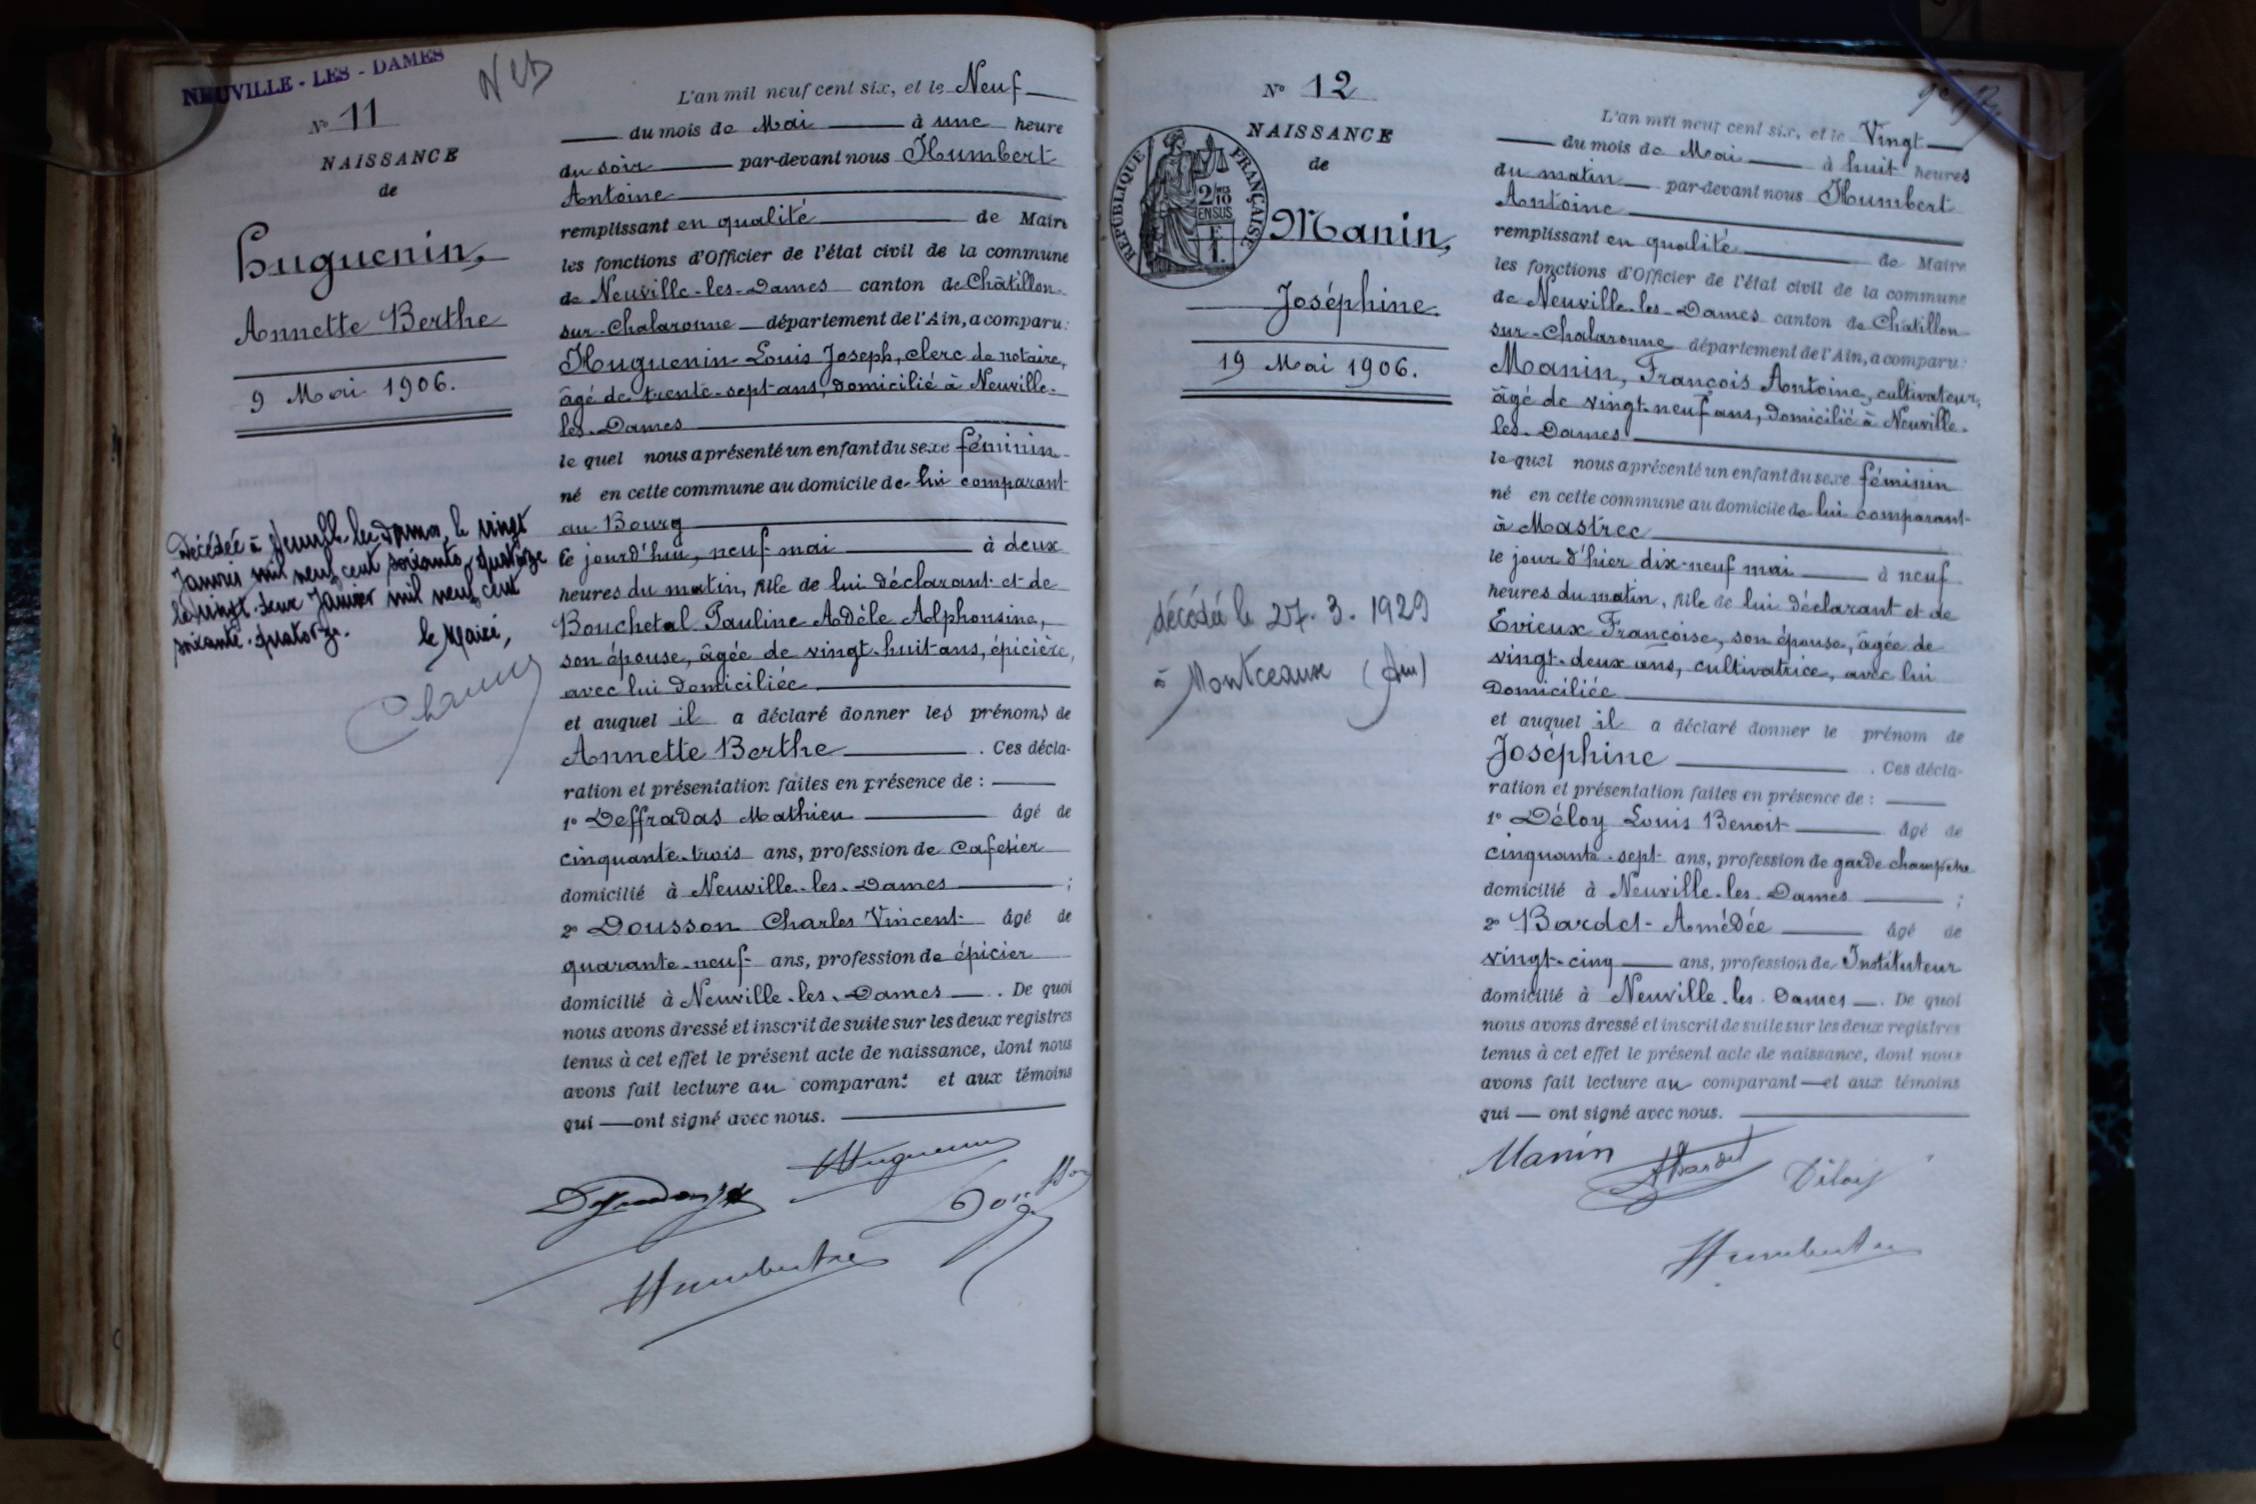 NEUVILLE - LES - DAMES
N° 11
NAISSANCE
de
Huguenin,
Annette Berthe
9 Mai 1906.
Décédée à Neuville-les-Dames, le vingt
Janvier mil neuf cent soixante-quatorze
le vingt-deux Janvier mil neuf cent
soixante-quatorze.
le Maire,
L'an mil neuf cent six, et le Neuf
du mois de Mai à une heure
du soir par-devant nous Humbert
Antoine
remplissant en qualité de Maire
les fonctions d'Officier de l'état civil de la commune
de Neuville-les-Dames canton de Châtillon-
sur-Chalaronne département de l'Ain, a comparu:
Huguenin Louis Joseph, clerc de notaire,
âgé de trente-sept ans, domicilié à Neuville-
les-Dames
le quel nous a présenté un enfant du sexe féminin
né en cette commune au domicile de lui comparant
au Bourg
ce jourd'hui, neuf mai à deux
heures du matin, fille de lui déclarant et de
Bouchetal Pauline Adèle Alphonsine,
son épouse, âgée de vingt-huit ans, épicière,
avec lui domiciliée
et auquel il a déclaré donner les prénoms de
Annette Berthe . Ces décla-
ration et présentation faites en présence de :
1° Deffradas Mathieu âgé de
cinquante-trois ans, profession de Cafetier
domicilié à Neuville-les-Dames ;
2° Dousson Charles Vincent âgé de
quarante-neuf ans, profession de épicier
domicilié à Neuville-les-Dames . De quoi
nous avons dressé et inscrit de suite sur les deux registres
tenus à cet effet le présent acte de naissance, dont nous
avons fait lecture au comparant et aux témoins
qui ont signé avec nous.
Huguenin
N° 12
NAISSANCE
de
RÉPUBLIQUE FRANÇAISE
2/10
EN SUS
Manin,
Joséphine
19 Mai 1906.
décédée le 27.3.1929
à Montceaux (Ain)
L'an mil neuf cent six, et le Vingt
du mois de Mai à huit heures
du matin par-devant nous Humbert
Antoine
remplissant en qualité de Maire
les fonctions d'Officier de l'état civil de la commune
de Neuville-les-Dames canton de Châtillon
sur-Chalaronne département de l'Ain, a comparu:
Manin, François Antoine, cultivateur,
âgé de vingt-neuf ans, domicilié à Neuville-
les-Dames
le quel nous a présenté un enfant du sexe féminin
né en cette commune au domicile de lui comparant
à Mastrec
le jour d'hier dix-neuf mai à neuf
heures du matin, fille de lui déclarant et de
Evieux Françoise, son épouse, âgée de
vingt-deux ans, cultivatrice, avec lui
domiciliée
et auquel il a déclaré donner le prénom de
Joséphine . Ces décla-
ration et présentation faites en présence de :
1° Déloy Louis Benoit âgé de
cinquante-sept ans, profession de garde champêtre
domicilié à Neuville-les-Dames ;
2° Bardet Amédée âgé de
vingt-cinq ans, profession de Instituteur
domicilié à Neuville-les-Dames . De quoi
nous avons dressé et inscrit de suite sur les deux registres
tenus à cet effet le présent acte de naissance, dont nous
avons fait lecture au comparant et aux témoins
qui ont signé avec nous.
Manin
ABardet
Déloy